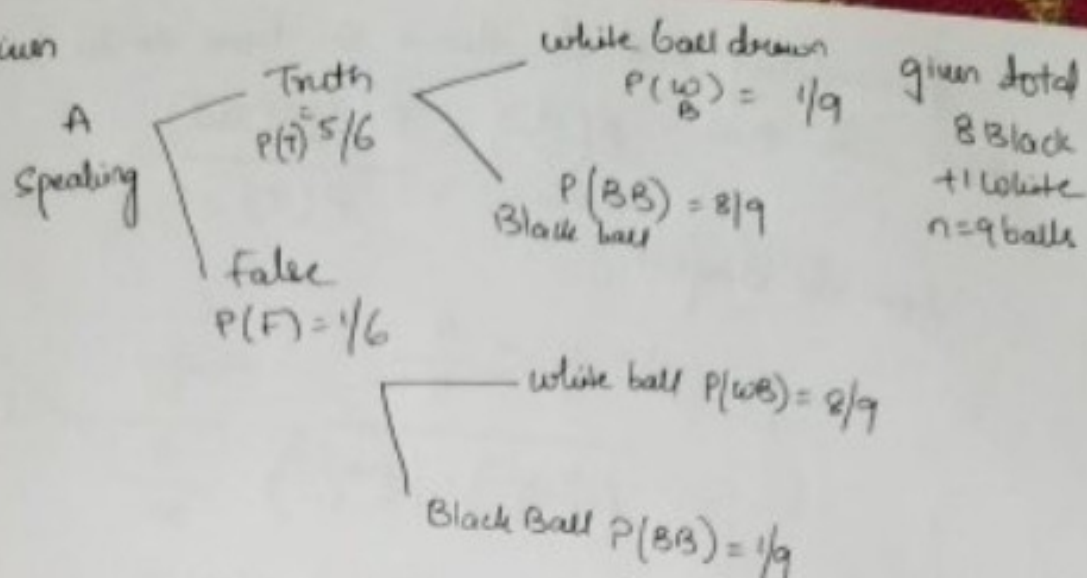 A
Speaking
Truth
P(T) = 5/6
False
P(F) = 1/6
white ball drawn
P(WB) = 1/9
P(BB) = 8/9
Black ball
given total
8 Black
+1 white
n=9 balls
white ball P(WB) = 8/9
Black Ball P(BB) = 1/9